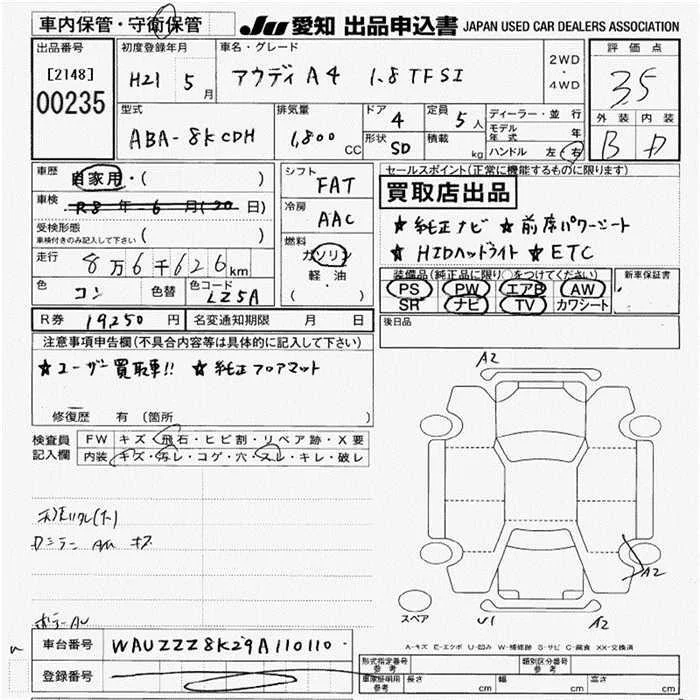 車内保管・守衛保管 JU 愛知 出品申込書 JAPAN USED CAR DEALERS ASSOCIATION
出品番号 初度登録年月 車名・グレード 2WD・4WD 評価点
[2148] H21 5月 アウディ A4 1.8 TFSI 3.5
00235 型式 排気量 ドア 定員 ディーラー・並行 外装 内装
ABA-8KCDH 1,800 CC 4 5人 モデル年式 年 B D
形状 SD 積載 kg ハンドル 左・右
車歴 自家用・( ) シフト FAT セールスポイント(正常に機能するものに限ります)
車検 R8年6月(20日) 冷房 AAC 買取店出品
受検形態 車検付きのみ記入して下さい ( ) ★純正ナビ ★前席パワーシート
走行 8万6千626km 燃料 ガソリン 軽油 ・( ) ★HIDヘッドライト ★ETC
色 コン 色替 色コード LZ5A 装備品(純正品に限り○をつけてください) 新車保証書
PS PW エアB AW
SR ナビ TV カワシート
R券 19,250円 名変通知期限 月 日 後日品
注意事項申告欄(不具合内容等は具体的に記入して下さい)
★ユーザー買取車!! ★純正フロアマット
修復歴 有(箇所 )
検査員記入欄 FW キズ・飛石・ヒビ割・リペア跡・X要
内装 キズ・汚レ・コゲ・穴・スレ・キレ・破レ
A2
A2
スペア U1 A2
A-キズ E-エクボ U-凹み W-補修跡 S-サビ C-腐食 XX-交換済
車台番号 WAUZZZ8K29A110110
登録番号 型式指定番号 参考 類別区分番号 参考
車庫証明用 参考 長さ cm 幅 cm 高さ cm